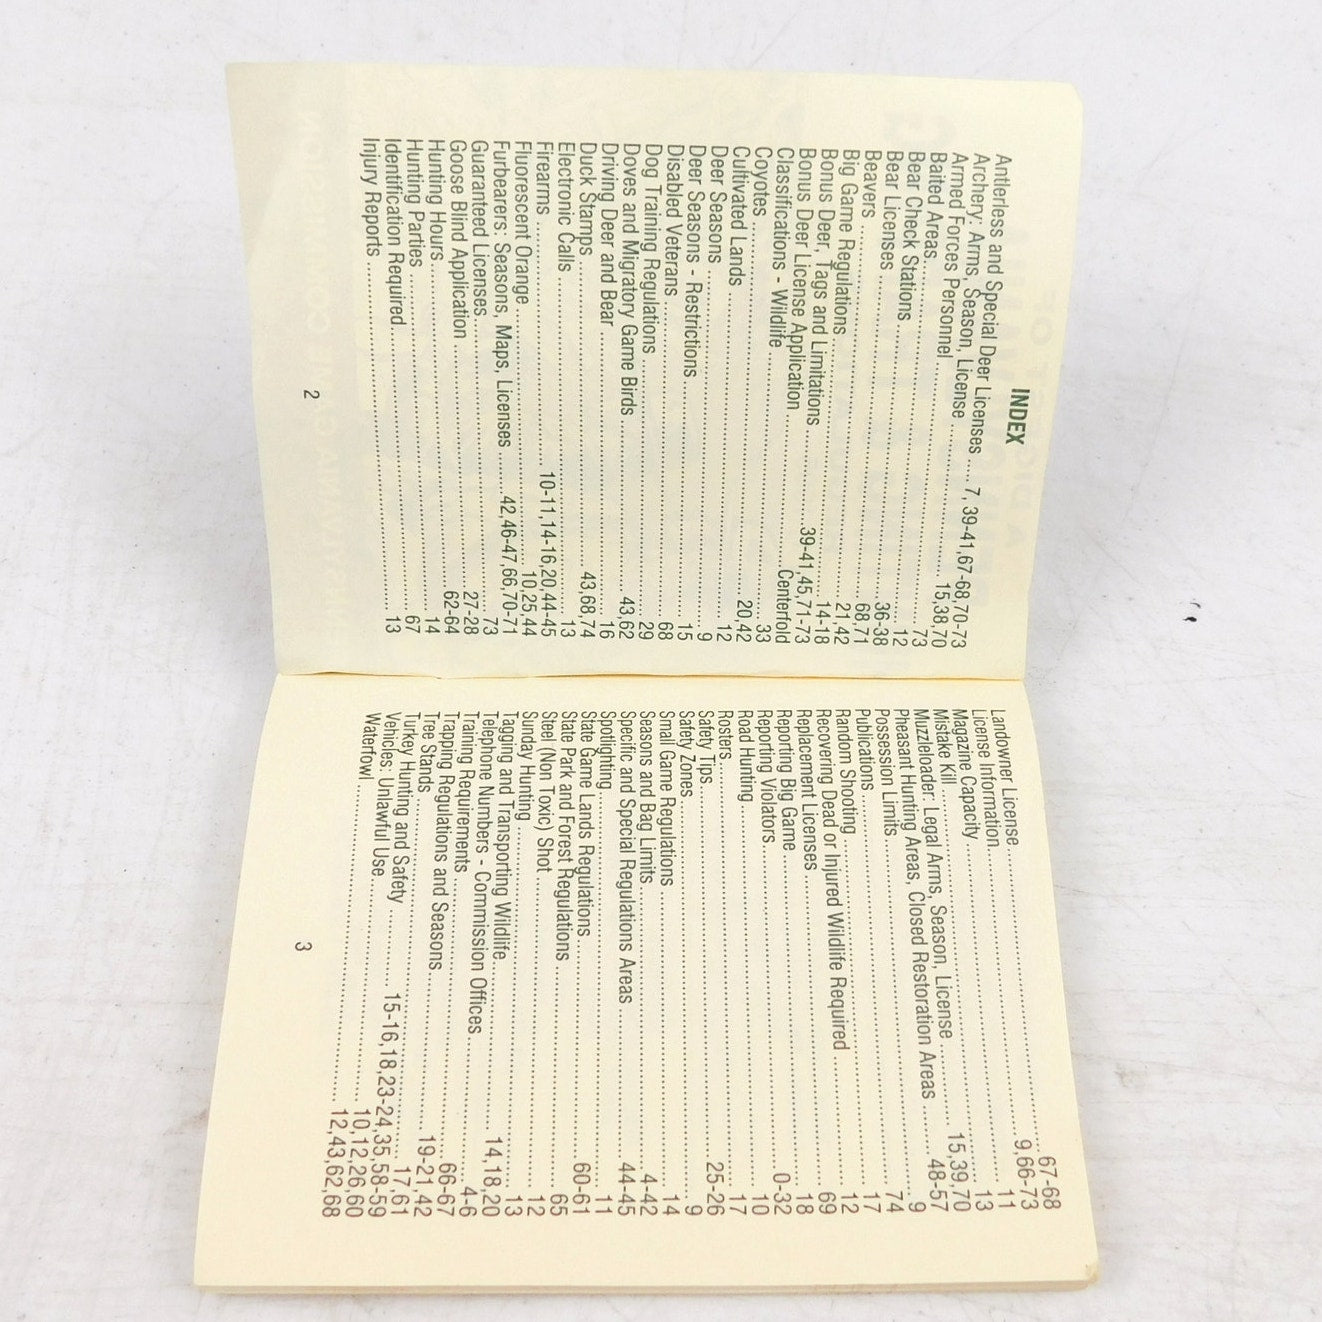 INDEX
Antlerless and Special Deer Licenses ..... 7, 39-41,67-68,70-73
Archery: Arms, Season, License ..... 15,38,70
Armed Forces Personnel ..... 73
Baited Areas ..... 12
Bear Check Stations ..... 36-38
Bear Licenses ..... 68,71
Beavers ..... 21,42
Big Game Regulations ..... 14-18
Bonus Deer, Tags and Limitations ..... 39-41,45,71-73
Bonus Deer License Application ..... Centerfold
Classifications - Wildlife ..... 33
Coyotes ..... 20,42
Cultivated Lands ..... 12
Deer Seasons ..... 9
Deer Seasons - Restrictions ..... 15
Disabled Veterans ..... 68
Dog Training Regulations ..... 29
Doves and Migratory Game Birds ..... 43,62
Driving Deer and Bear ..... 16
Duck Stamps ..... 43,68,74
Electronic Calls ..... 13
Firearms ..... 10-11,14-16,20,44-45
Fluorescent Orange ..... 10,25,44
Furbearers: Seasons, Maps, Licenses ..... 42,46-47,66,70-71
Guaranteed Licenses ..... 73
Goose Blind Application ..... 27-28
Hunting Hours ..... 62-64
Hunting Parties ..... 14
Identification Required ..... 67
Injury Reports ..... 13
2
Landowner License ..... 67-68
License Information ..... 9,66-73
Magazine Capacity ..... 11
Mistake Kill ..... 13
Muzzleloader: Legal Arms, Season, License ..... 15,39,70
Pheasant Hunting Areas, Closed Restoration Areas ..... 48-57
Possession Limits ..... 9
Publications ..... 74
Random Shooting ..... 17
Recovering Dead or Injured Wildlife Required ..... 12
Replacement Licenses ..... 69
Reporting Big Game ..... 18
Reporting Violators ..... 0-32
Road Hunting ..... 10
Rosters ..... 17
Safety Tips ..... 25-26
Safety Zones ..... 9
Small Game Regulations ..... 14
Seasons and Bag Limits ..... 4-42
Specific and Special Regulations Areas ..... 44-45
Spotlighting ..... 11
State Game Lands Regulations ..... 60-61
State Park and Forest Regulations ..... 65
Steel (Non Toxic) Shot ..... 12
Sunday Hunting ..... 13
Tagging and Transporting Wildlife ..... 14,18,20
Telephone Numbers - Commission Offices ..... 4-6
Training Requirements ..... 66-67
Trapping Regulations and Seasons ..... 19-21,42
Tree Stands ..... 17,61
Turkey Hunting and Safety ..... 15-16,18,23-24,35,58-59
Vehicles: Unlawful Use ..... 10,12,26,60
Waterfowl ..... 12,43,62,68
3